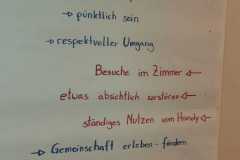 → pünktlich sein
→ respektvoller Umgang
Besuche im Zimmer ←
etwas absichtlich zerstören ←
ständiges Nutzen vom Handy ←
→ Gemeinschaft erleben - fördern